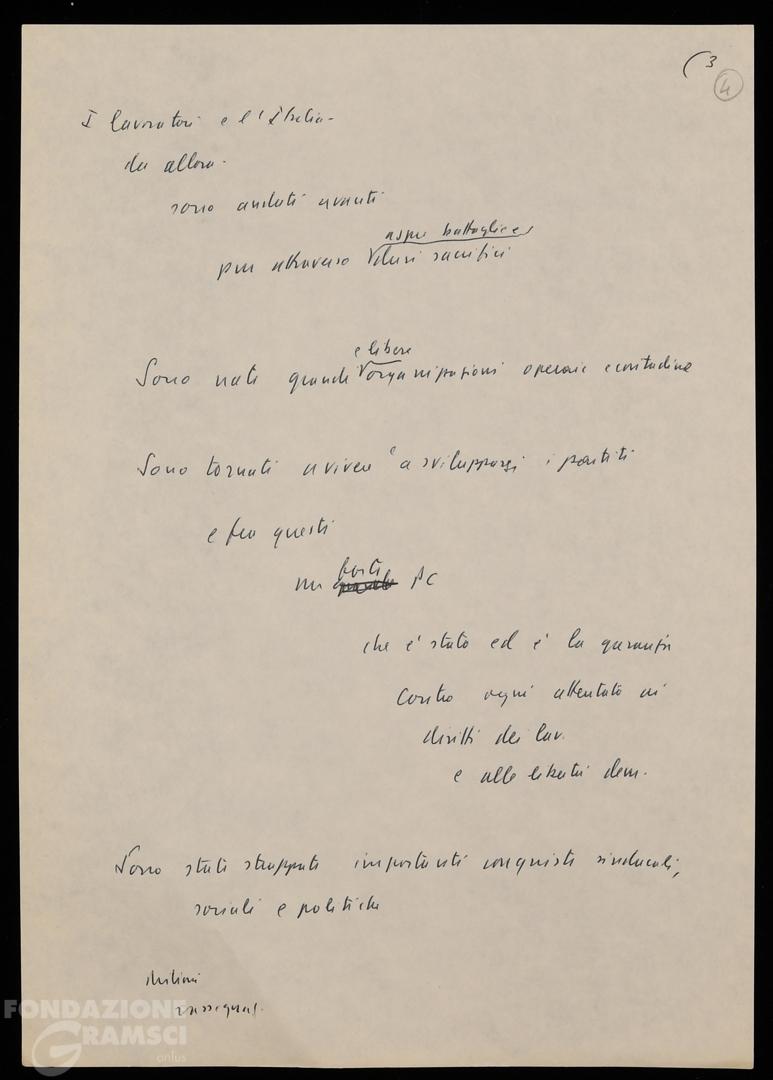 (3
4
I lavoratori e l'Italia -
da allora -
sono andati avanti
aspre battaglie e
pur attraverso duri sacrifici
e libere
Sono nate grandi organizzazioni operaie e contadine
Sono tornati a vivere e a svilupparsi i partiti
e fra questi
forte
un PC
che è stato ed è la garanzia
contro ogni attentato ai
diritti dei lav.
e alle libertà dem.
Sono state strappate importanti conquiste sindacali,
sociali e politiche
FONDAZIONE
GRAMSCI
onlus